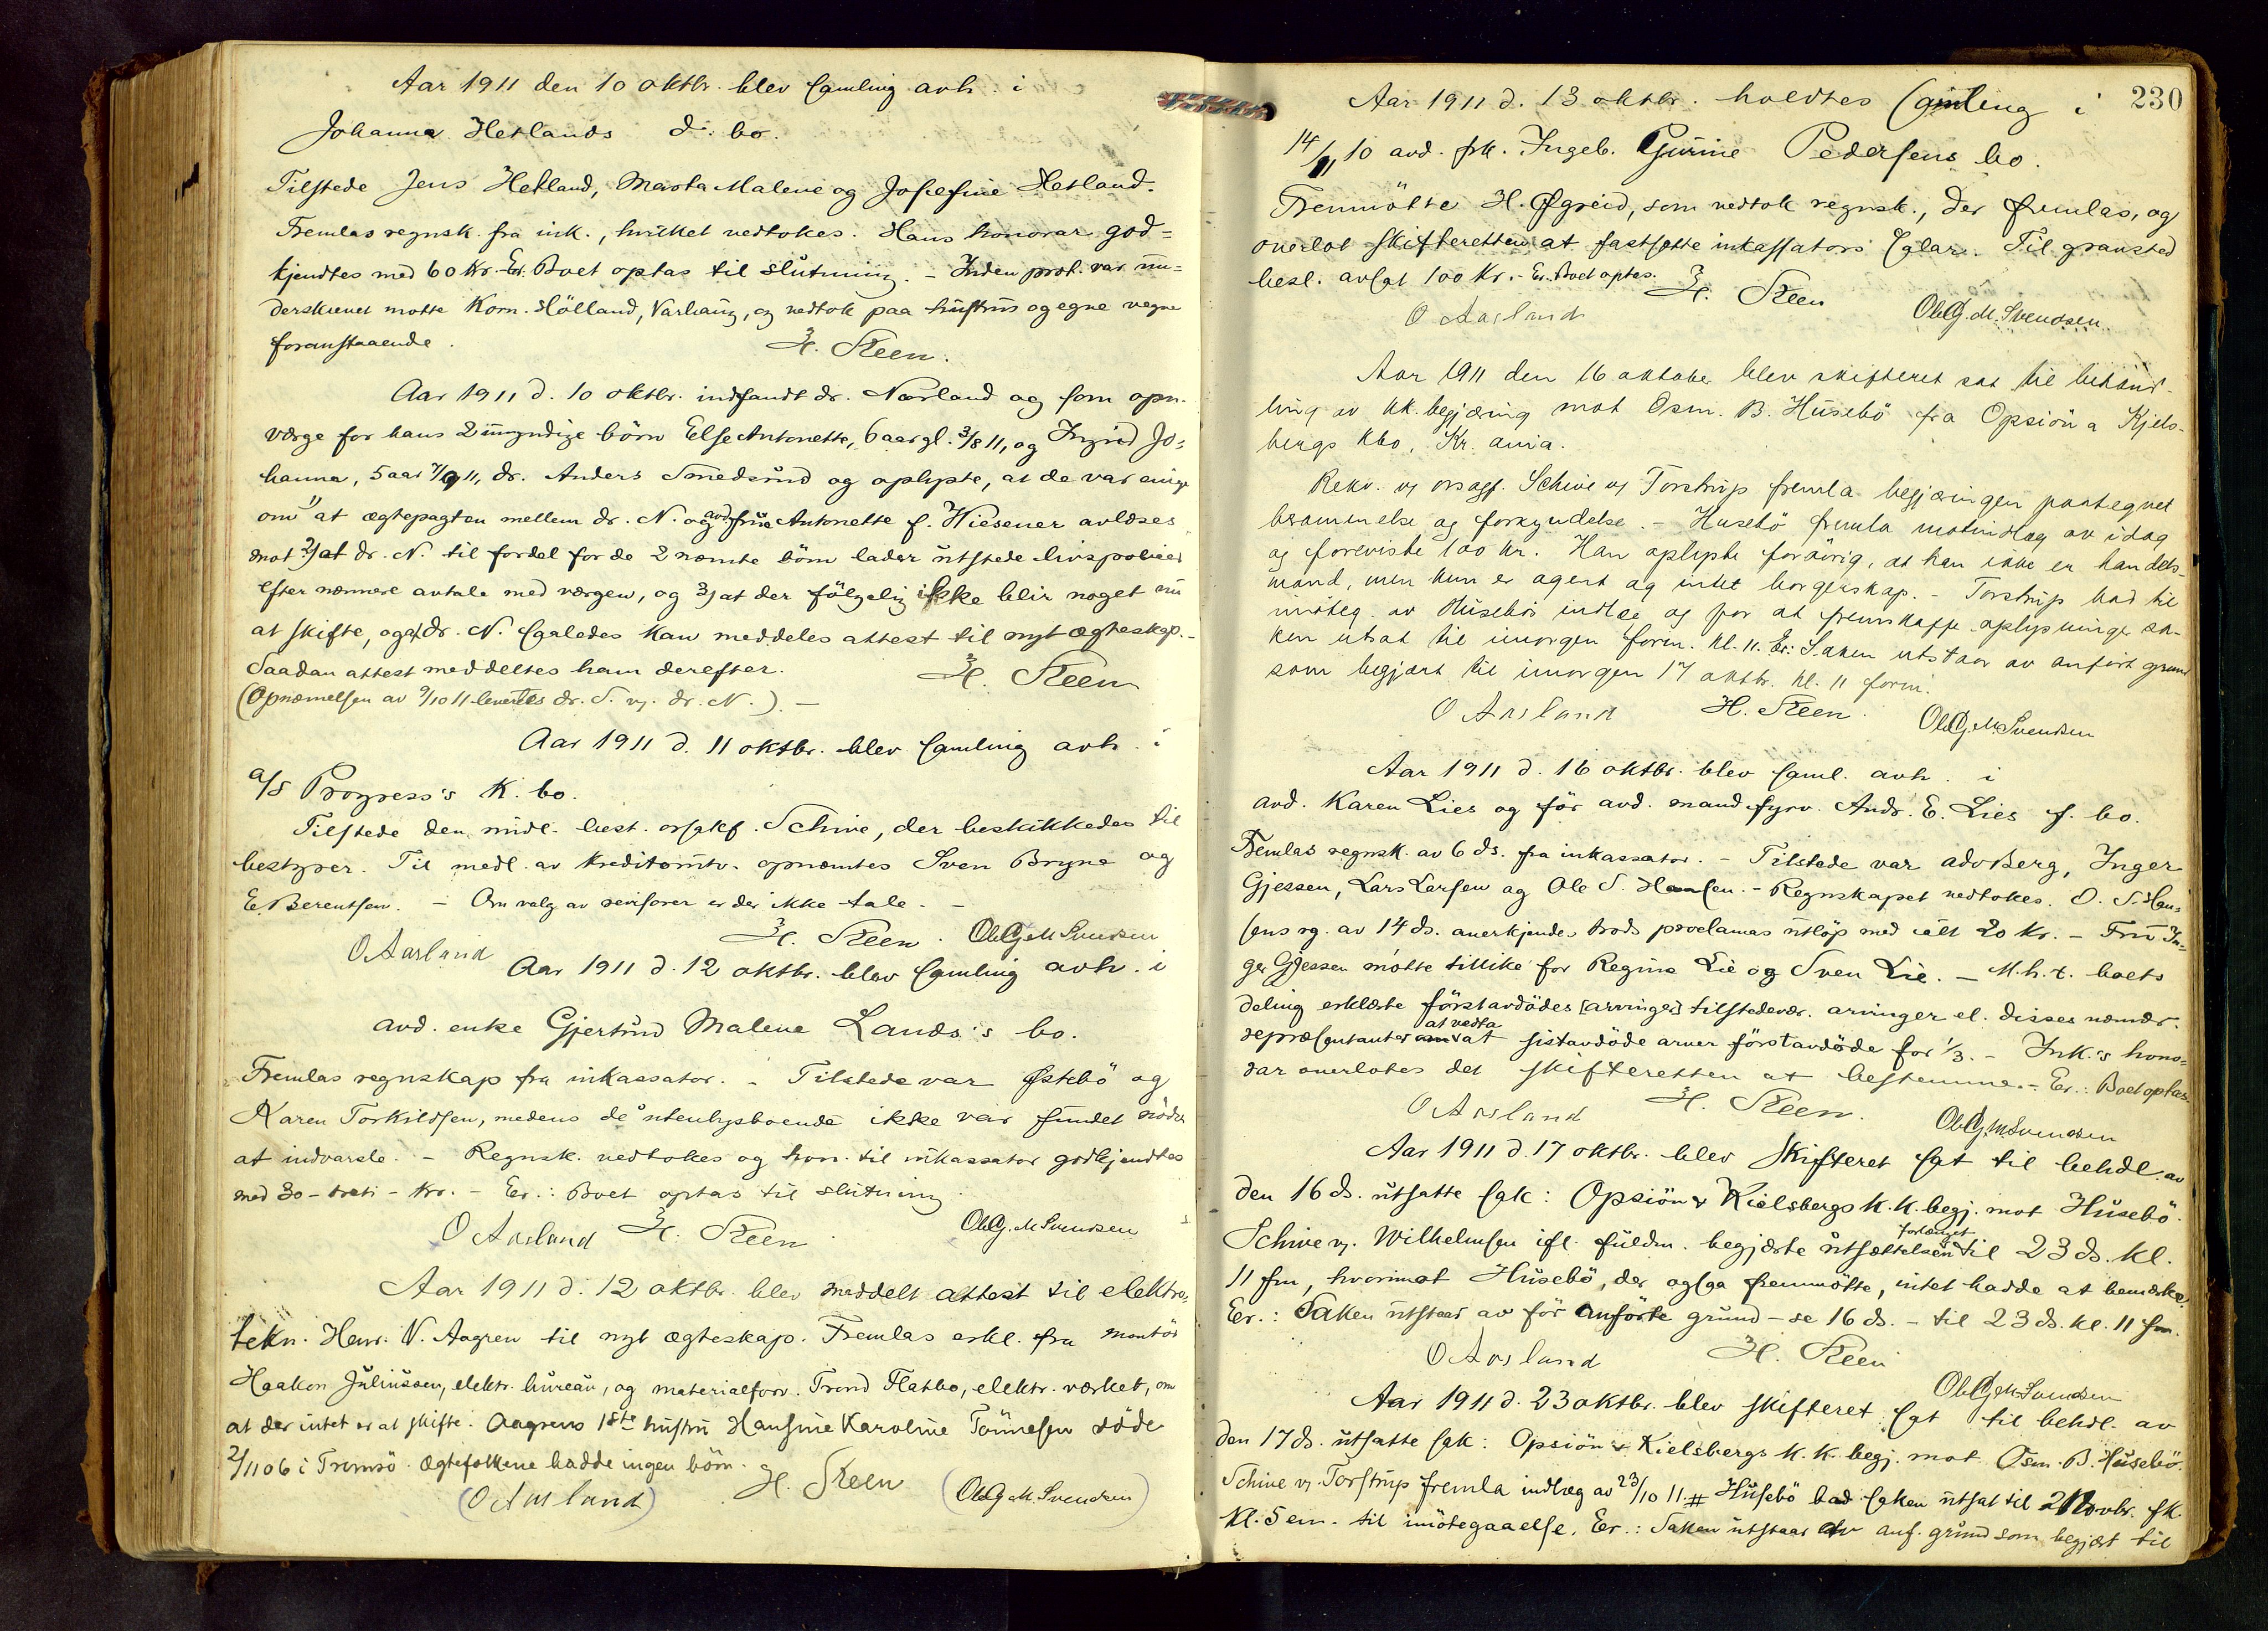 Aar 1911 den 10 oktbr. blev samling avh. i
Johanna Hetlands d. bo.
Tilstede Jens Hetland, Marta Malene og Josefine Hetland.
Fremlas regnsk. fra ink., hvilket vedtokes. Hans honorar god=
kjendtes med 60 Kr. Er. Boet optas til slutning. - Inden prot. var un=
derskrevet møtte Korn. Hölland, Varhaug, og vedtok paa hustrus og egne vegne
foranstaaende.
H. Steen.
Aar 1911 d. 10 oktbr. indfandt dr. Norland og som opn.
værge for hans 2 umyndige börn Else Antonette, 6 aar gl. 3/8 11, og Ingrid Jo=
hanna, 5 aar 7/9 11, dr. Anders Smedsund og oplyste, at de var enige
om 1) at ægtepagten mellem dr. N. og avd. frue Antonette f. Wiesener avlæses
mot 2) at dr. N. til fordel for de 2 nævnte börn lader utstede livspolicer
efter nærmere avtale med værgen, og 3) at der fölgelig ikke blir noget nu
at skifte, og at dr. N. saaledes kan meddeles attest til nyt ægteskap. -
Saadan attest meddeltes ham derefter.
H. Steen
(Opnævnelsen av 9/10 11 levertes dr. S. v. dr. N.). -
Aar 1911 d. 11 oktbr. blev samling avh. i
a/s Progress's K. bo.
Tilstede den midl. best. orsakf. Schive, der beskikkedes til
bestyrer. Til medl. av kreditorutv. opnævntes Sven Bryne og
E. Berentsen. - Om valg av revisorer er der ikke tale. -
O Aarland H. Steen. Ole G. M Svendsen
Aar 1911 d. 12 oktbr. blev samling avh. i
avd. enke Gjertrud Malene Lands's bo.
Fremlas regnskap fra inkassator. - Tilstede var Østebö og
Karen Torkildsen, medens de utenbysboende ikke var fundet nödv.
at indvarsle. - Regnsk. vedtokes og hon. til inkassator godkjendtes
med 30 - treti - Kr. - Er.: Boet optas til slutning.
O Aarland H. Steen Ole G. M Svendsen
Aar 1911 d. 12 oktbr. blev meddelt attest til elektro-
tekn. Henr. N. Aagren til nyt ægteskap. Fremlas erkl. fra montör
Haakon Juliussen, elektr. bureau, og materialforv. Trond Flatbo, elektr. værket, om
at der intet er at skifte. Aagrens 1ste hustru Hansine Karoline Tönnesen döde
2/11 06 i Tromsö. Ægtefolkene hadde ingen börn.
(O Aarland) H. Steen (Ole G. M. Svendsen)
230
Aar 1911 d. 13 oktbr. holdtes samling i
14/11 10 avd. frk. Ingeb. Gurine Pedersens bo.
Fremmötte H. Øgreid, som vedtok regnsk., der fremlas, og
overlot skifteretten at fastsætte inkassators salar. Til gravsted
besl. avsat 100 Kr. - Er. Boet optas.
H. Steen
O Aarland Ole G. M. Svendsen
Aar 1911 den 16 oktober blev skifteret sat til behand-
ling av kk. begjæring mot Osm. B. Husebö fra Opsiön a Kjels-
bergs kbo, Kr. ania.
Rekv. v orsagf. Schive v Torstrup fremla begjæringen paategnet
berammelse og forkyndelse. - Husebö fremla motindlæg av idag
og foreviste 100 kr. Han oplyste forövrig, at han ikke er handels-
mand, men kun er agent og intet borgerskap. - Torstrup bad til
imöteg. av Husebös indlæg og for at fremskaffe oplysninger sa-
ken utsat til imorgen form. kl. 11. Er: Saken utstaar av anfört grund
som begjært til imorgen 17 oktbr. kl. 11 form.
O Aarland H. Steen. Ole G. M. Svendsen
Aar 1911 d. 16 oktbr. blev saml. avh. i
avd. Karen Lies og för avd. mand fyrv. Andr. E. Lies f. bo.
Fremlas regnsk. av 6 ds. fra inkassator. - Tilstede var adv Berg, Inger
Gjessen, Lars Larsen og Ole S. Hansen. - Regnskapet vedtokes. O. S. Han=
sens rg. av 14 ds. anerkjendes trods proclamas utlöp med ialt 20 Kr. - Fru In=
ger Gjessen mötte tillike for Regine Lie og Sven Lie. - M. h. t. boets
deling erklærte förstavdödes [arvinger] tilstedevær. arvinger el. disses nævnte
repræsentanter at vedta at sistavdöde arver förstavdöde for 1/3. - Ink.'s hono=
rar overlotes det skifteretten at bestemme. - Er.: Boet optas.
O Aarland H. Steen. Ole G. M Svendsen
Aar 1911 d. 17 oktbr. blev skifteret sat til behdl. av
den 16 ds. utsatte sak: Opsiön & Kielsbergs K. K. begj. mot Husebö.
Schive v. Wilhelmsen ifl. fuldm. begjærte utsættelsen forlænget til 23 ds. kl.
11 fm, hvorimot Husebö, der ogsaa fremmötte, intet hadde at bemærke.
Er.: Saken utstaar av för anförte grund - se 16 ds. - til 23 ds. kl. 11 fm.
O Aarland H. Steen
Ole G. M Svendsen
Aar 1911 d. 23 oktbr. blev skifteret sat til behdl. av
den 17 ds. utsatte sak: Opsiön & Kielsbergs K. K. begj. mot Osm. B. Husebö.
Schive v. Torstrup fremla indlæg av 23/10 11. # Husebö bad saken utsat til 2 Novbr. fk.
Kl. 5 em. til imötegaaelse. Er.: Saken utstaar av anf. grund som begjært til